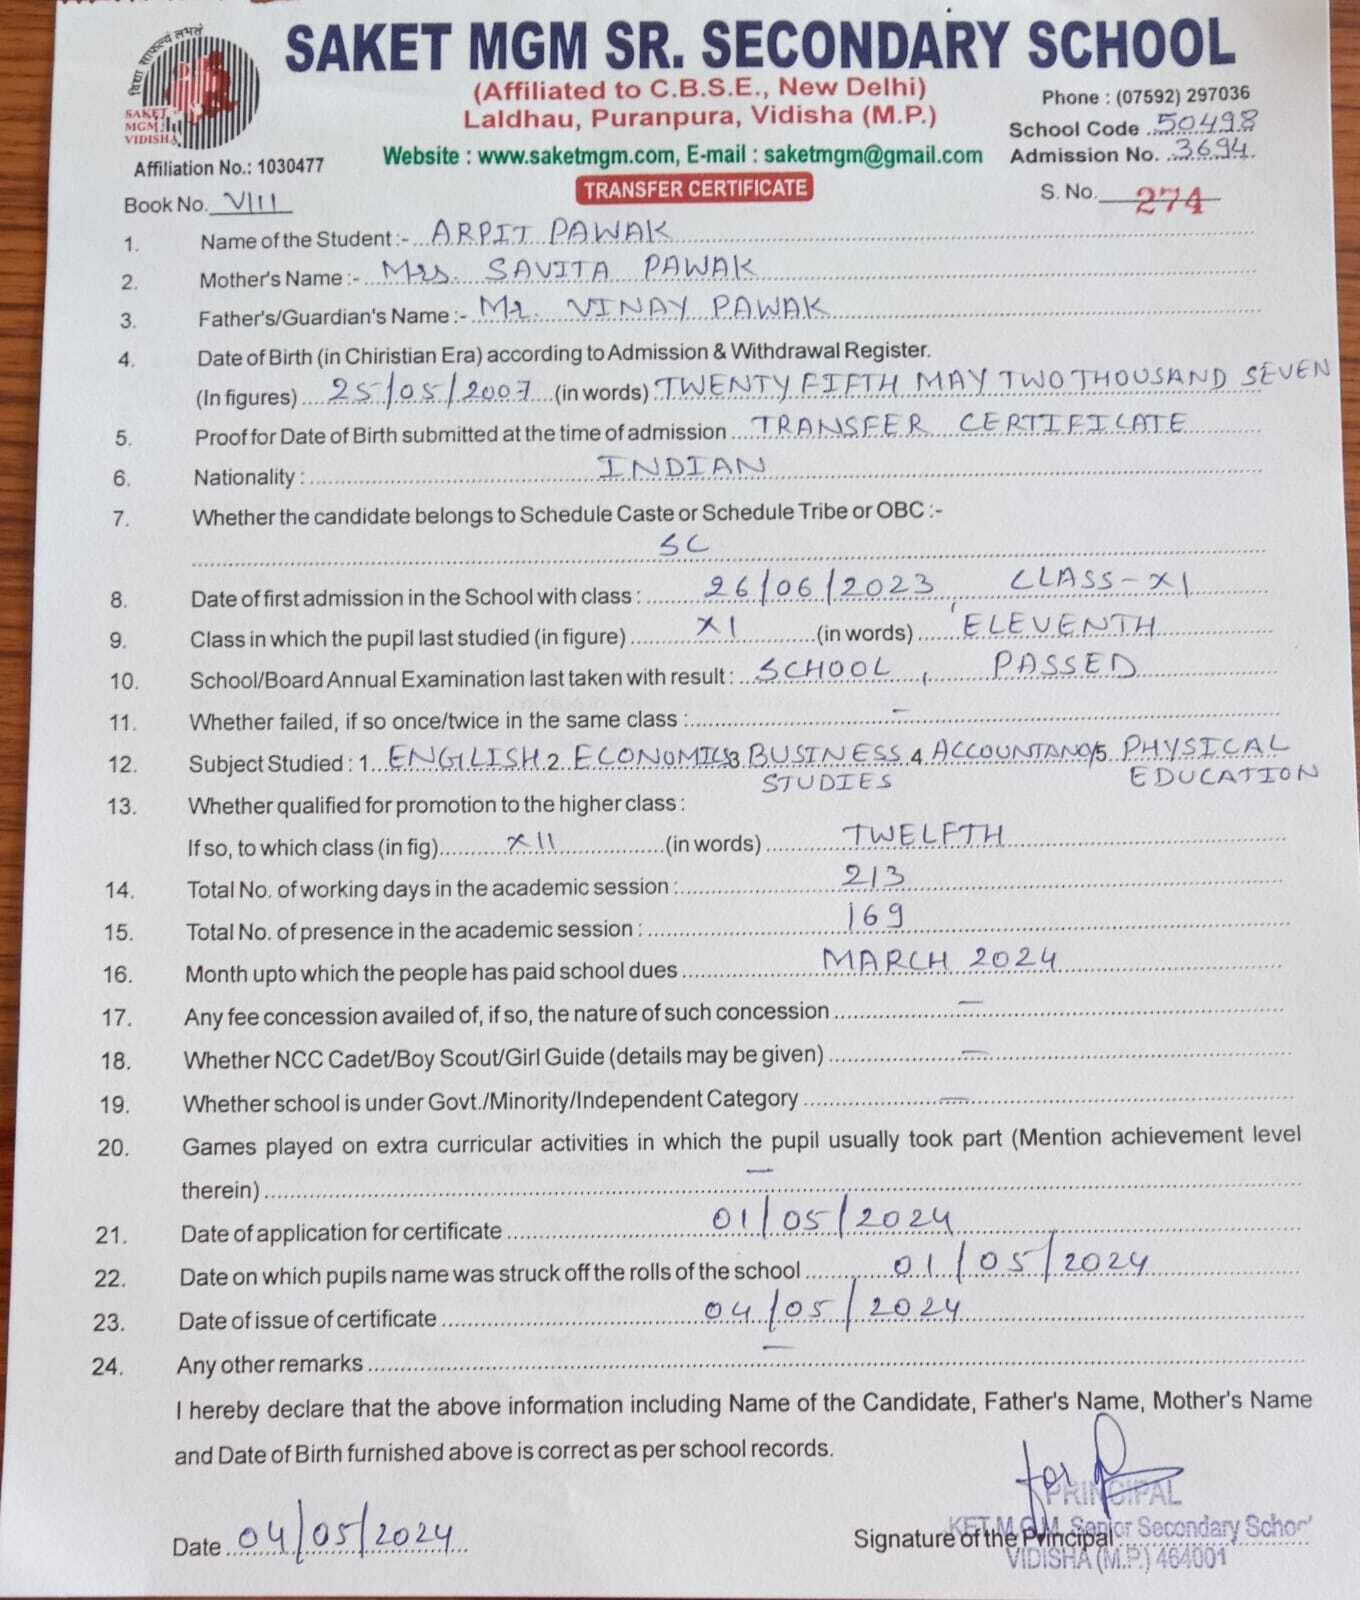 विद्या साफल्यं लभते
SAKET
MGM
VIDISHA
SAKET MGM SR. SECONDARY SCHOOL
(Affiliated to C.B.S.E., New Delhi)
Laldhau, Puranpura, Vidisha (M.P.)
Phone : (07592) 297036
School Code 50498
Website : www.saketmgm.com, E-mail : saketmgm@gmail.com
Admission No. 3694
Affiliation No.: 1030477
TRANSFER CERTIFICATE
Book No. VIII
S. No. 274
1. Name of the Student :- ARPIT PAWAK
2. Mother's Name :- Mrs. SAVITA PAWAK
3. Father's/Guardian's Name :- Mr. VINAY PAWAK
4. Date of Birth (in Chiristian Era) according to Admission & Withdrawal Register.
(In figures) 25/05/2007 (in words) TWENTY FIFTH MAY TWO THOUSAND SEVEN
5. Proof for Date of Birth submitted at the time of admission TRANSFER CERTIFICATE
6. Nationality : INDIAN
7. Whether the candidate belongs to Schedule Caste or Schedule Tribe or OBC :-
SC
8. Date of first admission in the School with class : 26/06/2023, CLASS-XI
9. Class in which the pupil last studied (in figure) XI (in words) ELEVENTH
10. School/Board Annual Examination last taken with result : SCHOOL, PASSED
11. Whether failed, if so once/twice in the same class : –
12. Subject Studied : 1 ENGLISH 2 ECONOMICS 3 BUSINESS 4 ACCOUNTANCY 5 PHYSICAL
STUDIES EDUCATION
13. Whether qualified for promotion to the higher class :
If so, to which class (in fig) XII (in words) TWELFTH
14. Total No. of working days in the academic session : 213
15. Total No. of presence in the academic session : 169
16. Month upto which the people has paid school dues MARCH 2024
17. Any fee concession availed of, if so, the nature of such concession –
18. Whether NCC Cadet/Boy Scout/Girl Guide (details may be given) –
19. Whether school is under Govt./Minority/Independent Category –
20. Games played on extra curricular activities in which the pupil usually took part (Mention achievement level
therein) –
21. Date of application for certificate 01/05/2024
22. Date on which pupils name was struck off the rolls of the school 01/05/2024
23. Date of issue of certificate 04/05/2024
24. Any other remarks –
I hereby declare that the above information including Name of the Candidate, Father's Name, Mother's Name
and Date of Birth furnished above is correct as per school records.
for
PRINCIPAL
KET M.G.M. Senior Secondary School
Date 04/05/2024
Signature of the Principal
VIDISHA (M.P.) 464001